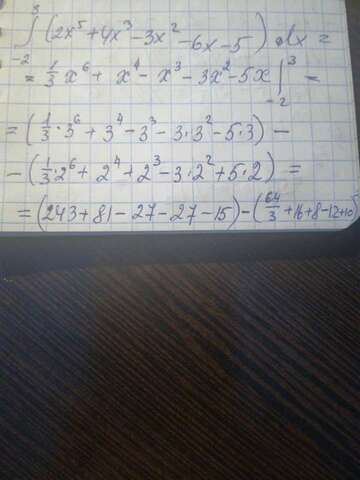 ∫₋₂³ (2x⁵+4x³-3x²-6x-5) dx =
= 1/3 x⁶ + x⁴ - x³ - 3x² - 5x |₋₂³ =
= (1/3 · 3⁶ + 3⁴ - 3³ - 3·3² - 5·3) -
- (1/3 · 2⁶ + 2⁴ + 2³ - 3·2² + 5·2) =
= (243+81-27-27-15) - (64/3 +16+8-12+10)